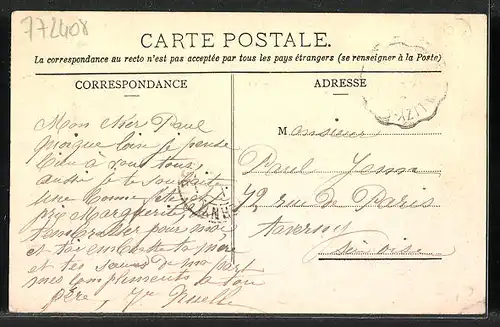 772408
CARTE POSTALE.
La correspondance au recto n'est pas acceptée par tous les pays étrangers (se renseigner à la Poste)
CORRESPONDANCE
ADRESSE
Mon cher Paul
quoique loin je pense
bien à vous tous
aussi je te souhaite
une bonne fête, et
prie Marguerite de
t'embrasser pour moi
et toi embrasse ta mère
et tes sœurs de ma part
mes compliments à ton
père,
Monsieur
Paul
72 rue de Paris
Taverny
Seine et Oise